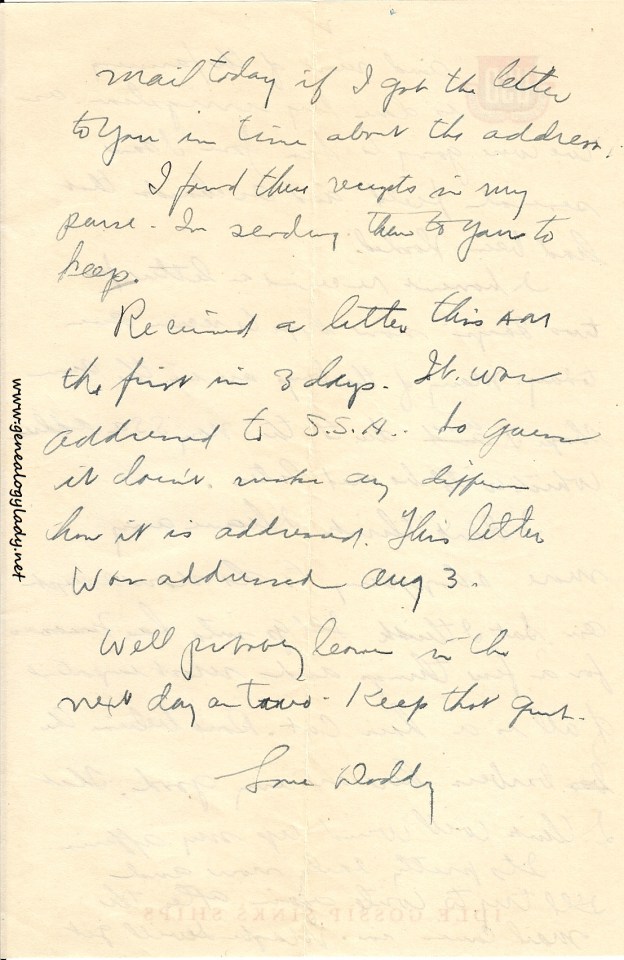 mail today if I got the letter
to you in time about the address.
I found these receipts in my
purse. Im sending them to you to
keep.
Received a letter this AM
the first in 3 days. It. was
addressed to S.S.A.. So guess
it doesn't. make any difference
how it is addressed. This letter
was addressed Aug 3.
Well probably leave in the
next day or two. Keep that quiet.
Love Daddy
www.genealogylady.net
IDLE GOSSIP SINKS SHIPS